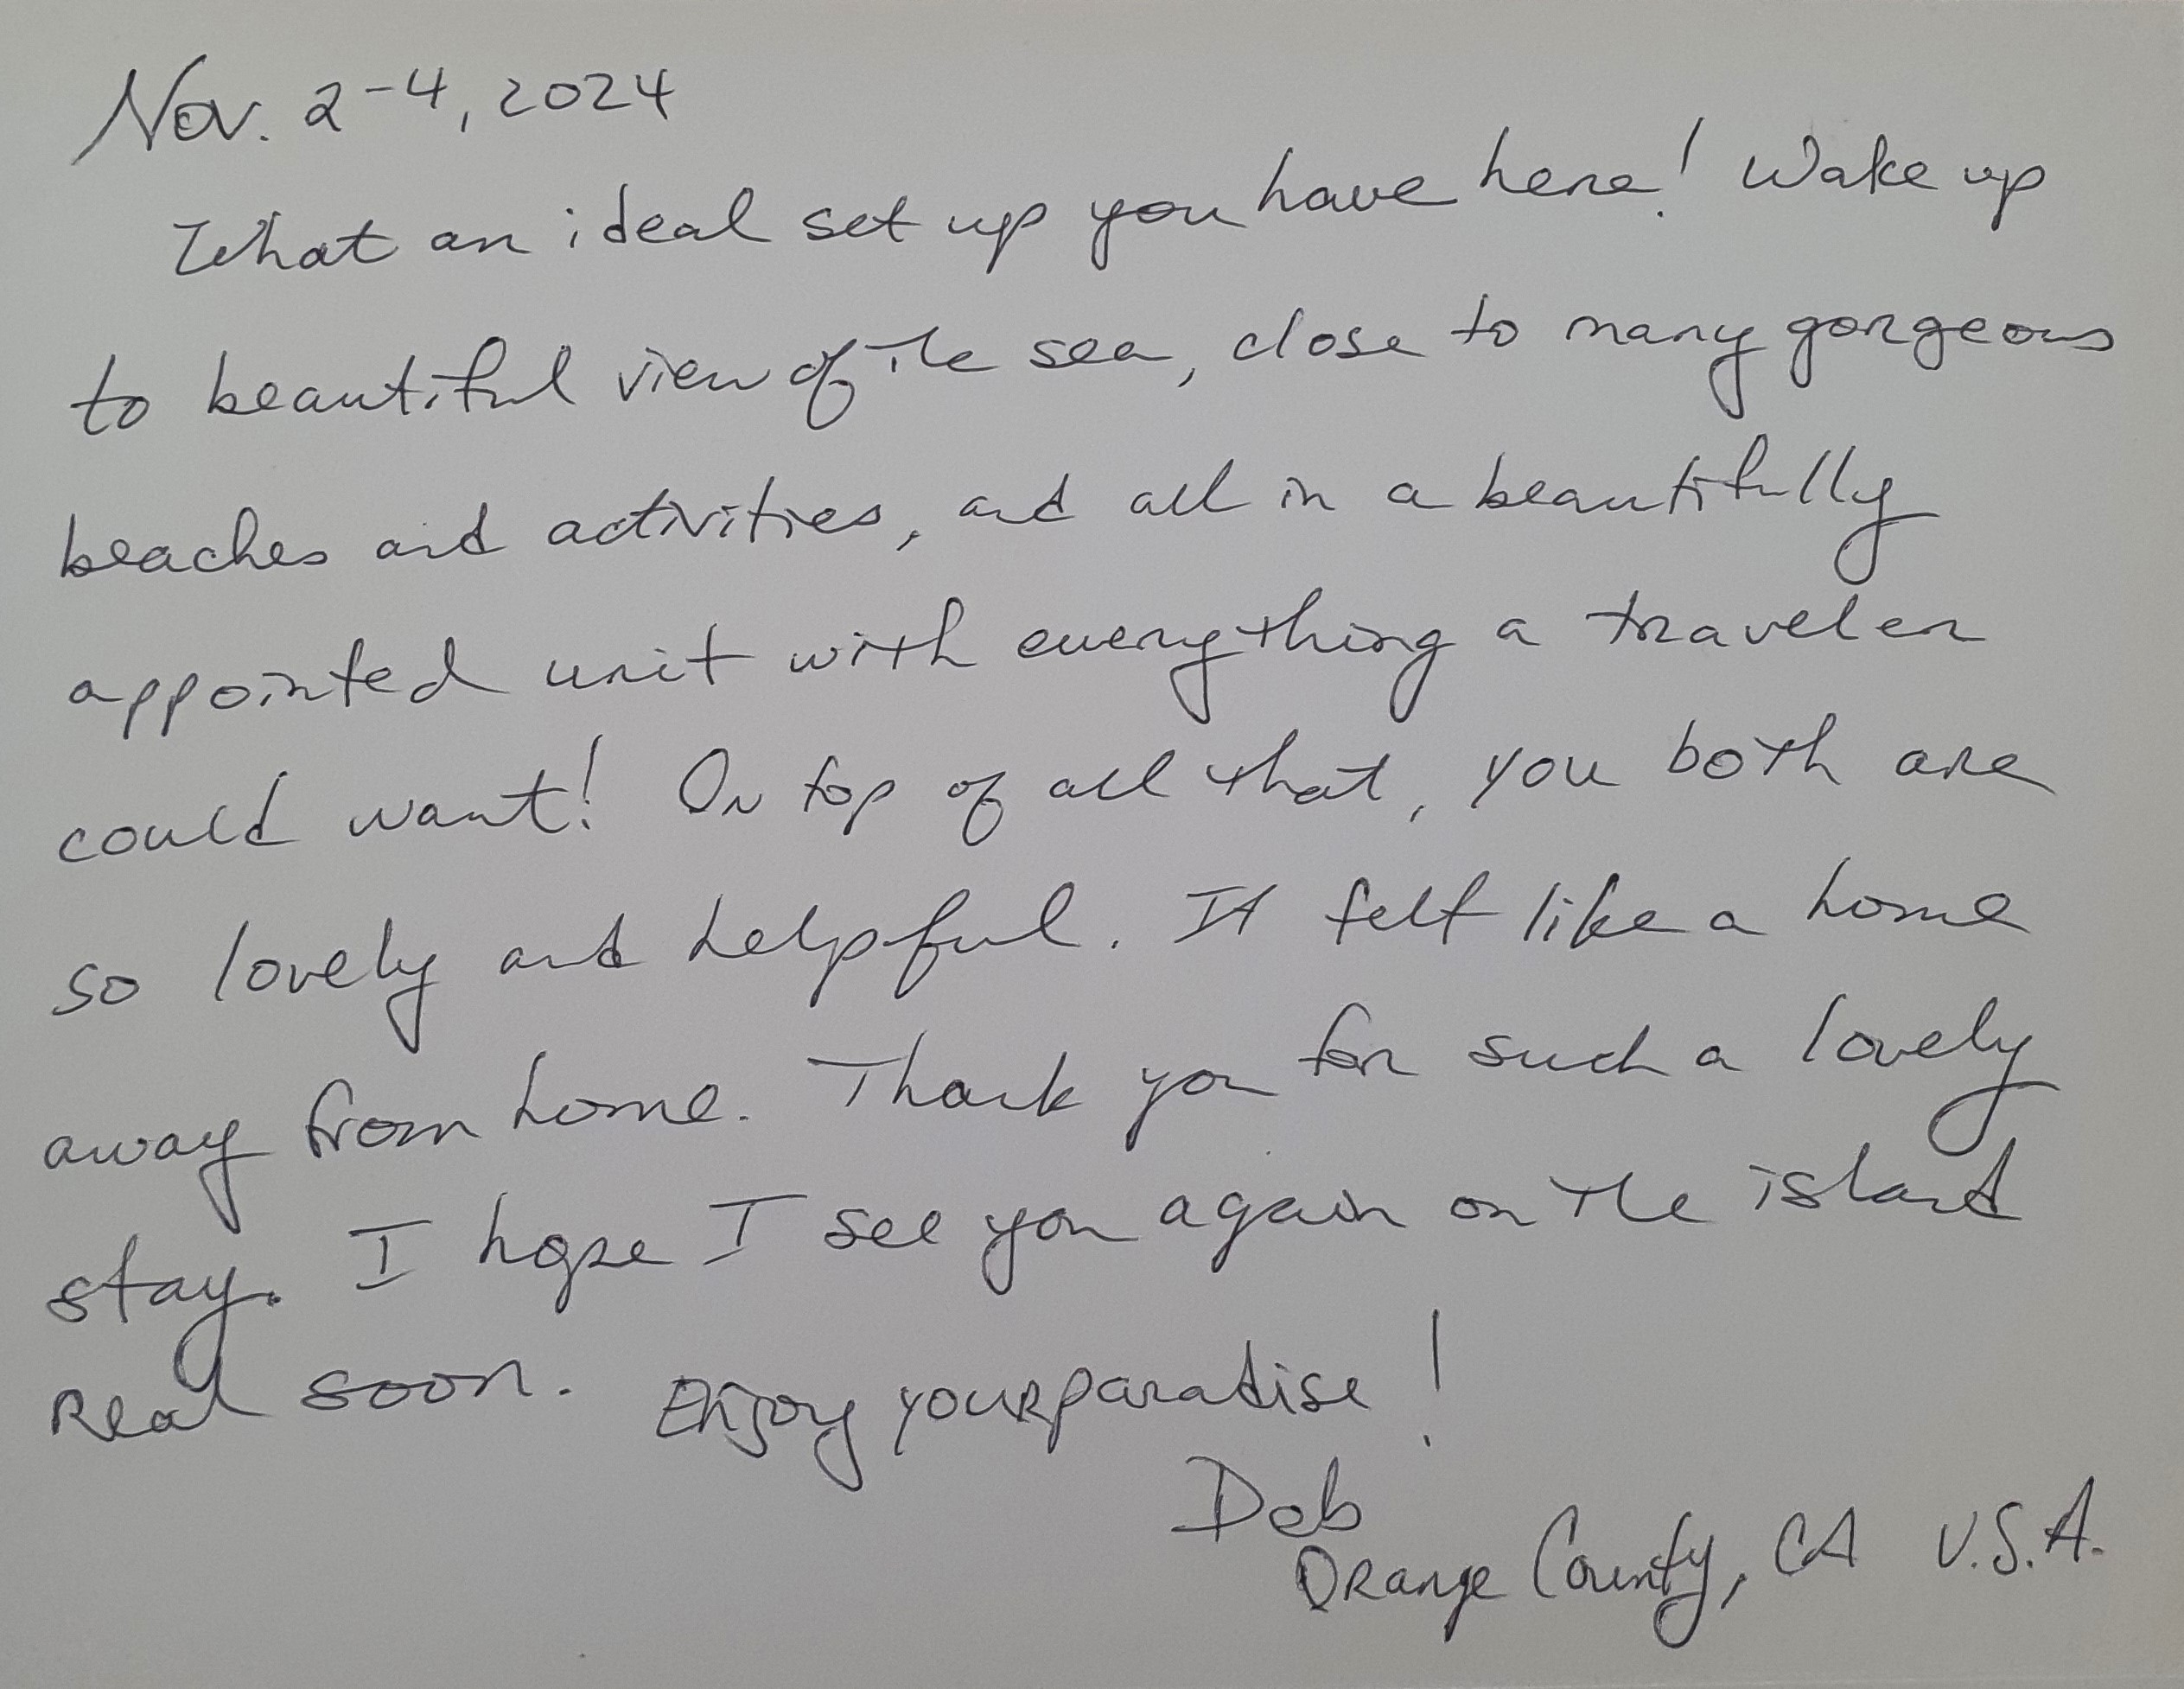 Nov. 2-4, 2024
What an ideal set up you have here! Wake up
to beautiful view of the sea, close to many gorgeous
beaches and activities, and all in a beautifully
appointed unit with everything a traveler
could want! On top of all that, you both are
so lovely and helpful. It felt like a home
away from home. Thank you for such a lovely
stay. I hope I see you again on the island
real soon. Enjoy your paradise!
Deb
Orange County, CA U.S.A.